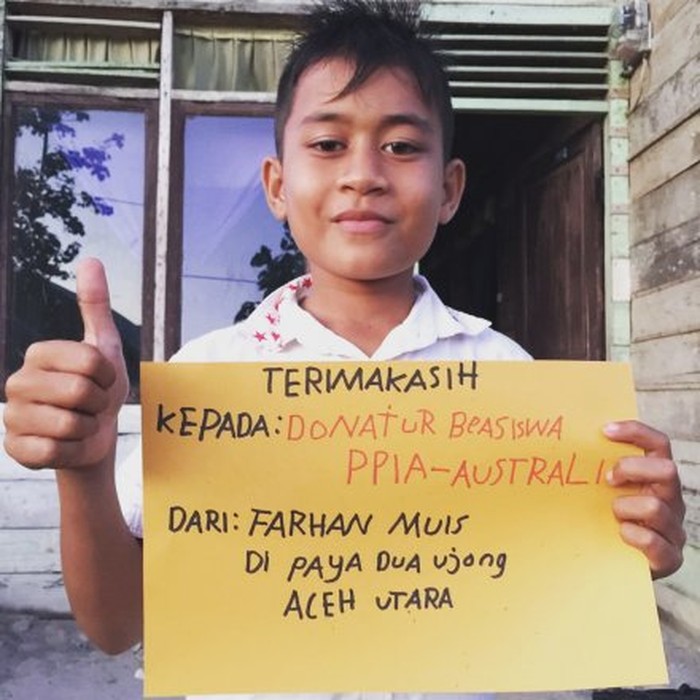 TERIMAKASIH
KEPADA: DONATUR BEASISWA
PPIA-AUSTRALI
DARI: FARHAN MUIS
DI PAYA DUA UJONG
ACEH UTARA